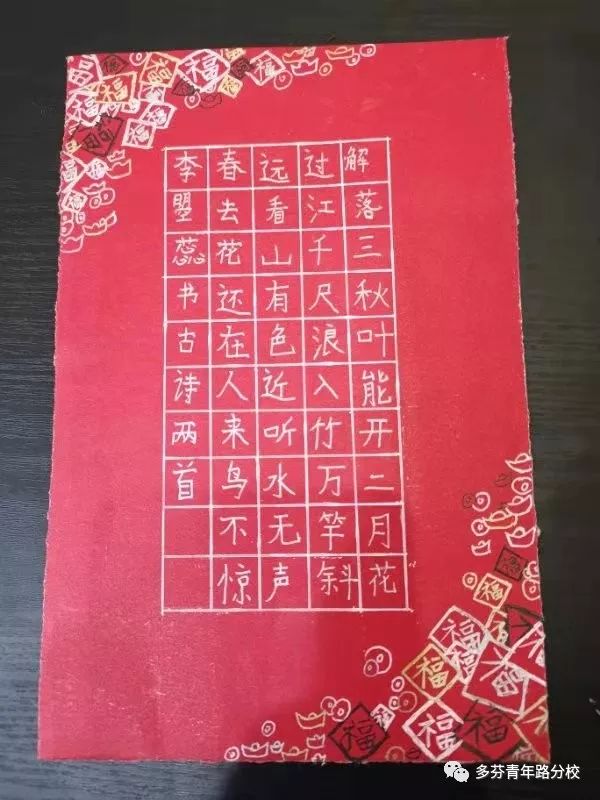 福
福
福
福
福
福
解落三秋叶能开二月花
过江千尺浪入竹万竿斜
远看山有色近听水无声
春去花还在人来鸟不惊
李蕊书古诗两首
福
福
福
福
福
福
福
福
多芬青年路分校